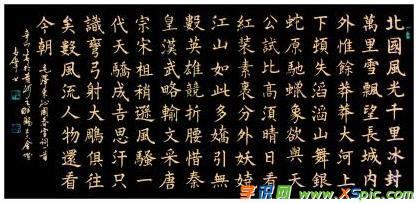 北國風光千里冰封
萬里雪飄望長城内
外惟餘莽莽大河上
下頓失滔滔山舞銀
蛇原馳蠟象欲與天
公試比高須晴日看
紅裝素裹分外妖嬈
江山如此多嬌引無
數英雄競折腰惜秦
皇漢武略輸文采唐
宗宋祖稍遜風騷一
代天驕成吉思汗只
識彎弓射大鵰俱往
矣數風流人物還看
今朝
毛澤東沁園春雪詞一首
学识网
www.XSpic.com